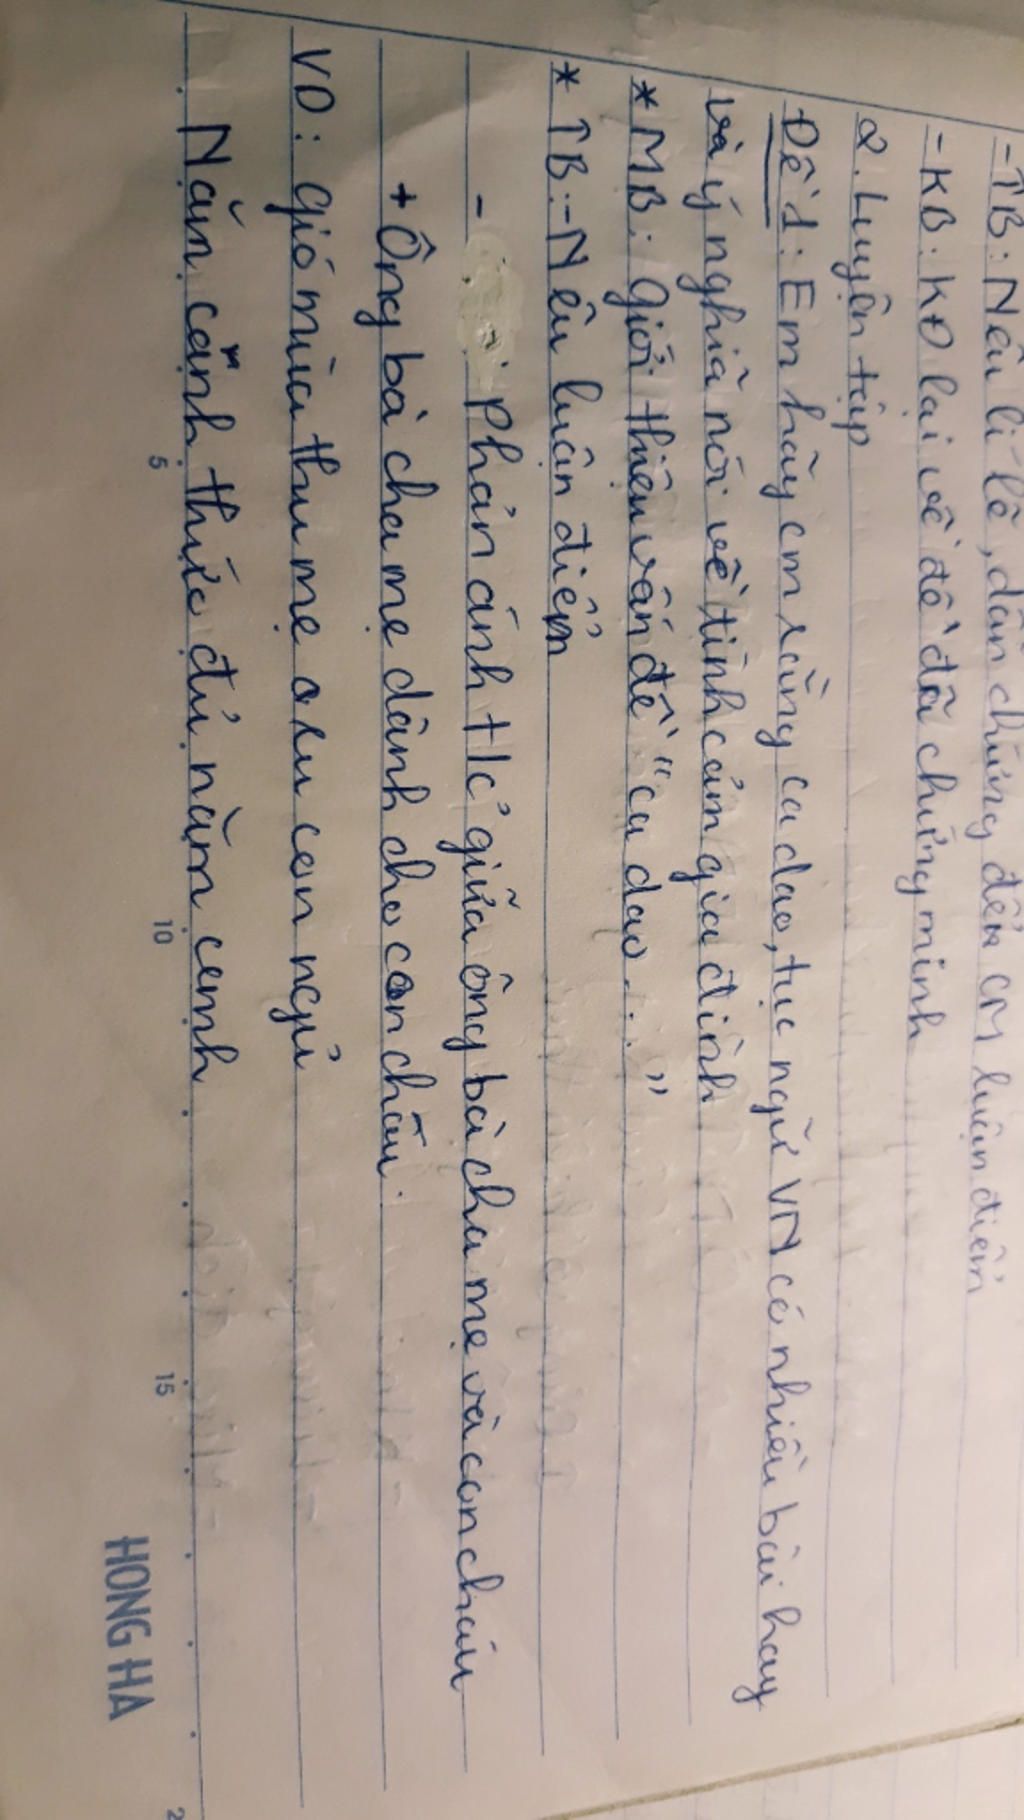 -TB: Nêu lí lẽ, dẫn chứng để CM luận điểm
-KB: KĐ lại về đề đã chứng minh
2. Luyện tập
Đề 1: Em hãy cm rằng ca dao, tục ngữ VN có nhiều bài hay
và ý nghĩa nói về tình cảm gia đình
* MB: Giới thiệu vấn đề "ca dao... "
* TB:-Nêu luận điểm
- phản ánh t/c' giữa ông bà cha mẹ và con cháu
+ Ông bà cha mẹ dành cho con cháu.
VD: Gió mùa thu mẹ ru con ngủ
Năn canh thức đủ năm canh
5 10 15 2
HONG HA